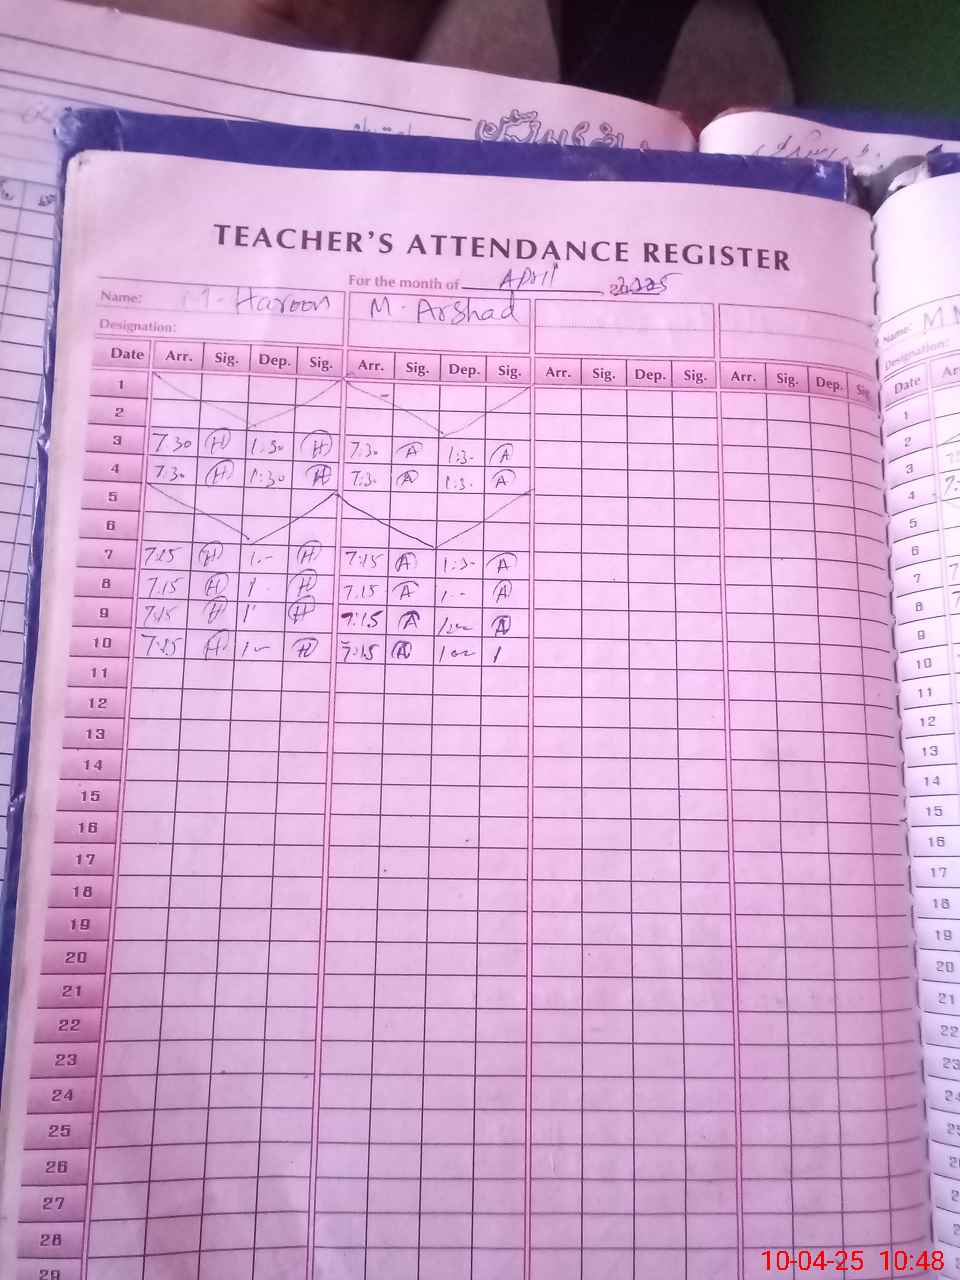 TEACHER'S ATTENDANCE REGISTER
For the month of April 2025
Name: M. Haroon M. Arshad
Designation:
Date Arr. Sig. Dep. Sig. Arr. Sig. Dep. Sig. Arr. Sig. Dep. Sig. Arr. Sig. Dep. Sig.
1
2
3 7.30 H 1:30 H 7:30 A 1:30 A
4 7:30 H 1:30 H 7:30 A 1:30 A
5
6
7 7:15 H 1.- H 7:15 A 1:30 A
8 7.15 H 1 - H 7.15 A 1 -- A
9 7:15 H 1 H 7:15 A 1 A
10 7:15 H 1 -- H 7:15 A 1
11
12
13
14
15
16
17
18
19
20
21
22
23
24
25
26
27
28
29
Name: M
Designation:
Date
1
2
3
4
5
6
7
8
9
10
11
12
13
14
15
16
17
18
19
20
21
22
23
10-04-25 10:48